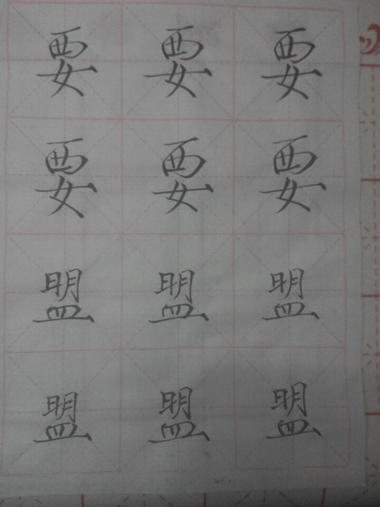 要要要
要要要
盟盟盟
盟盟盟